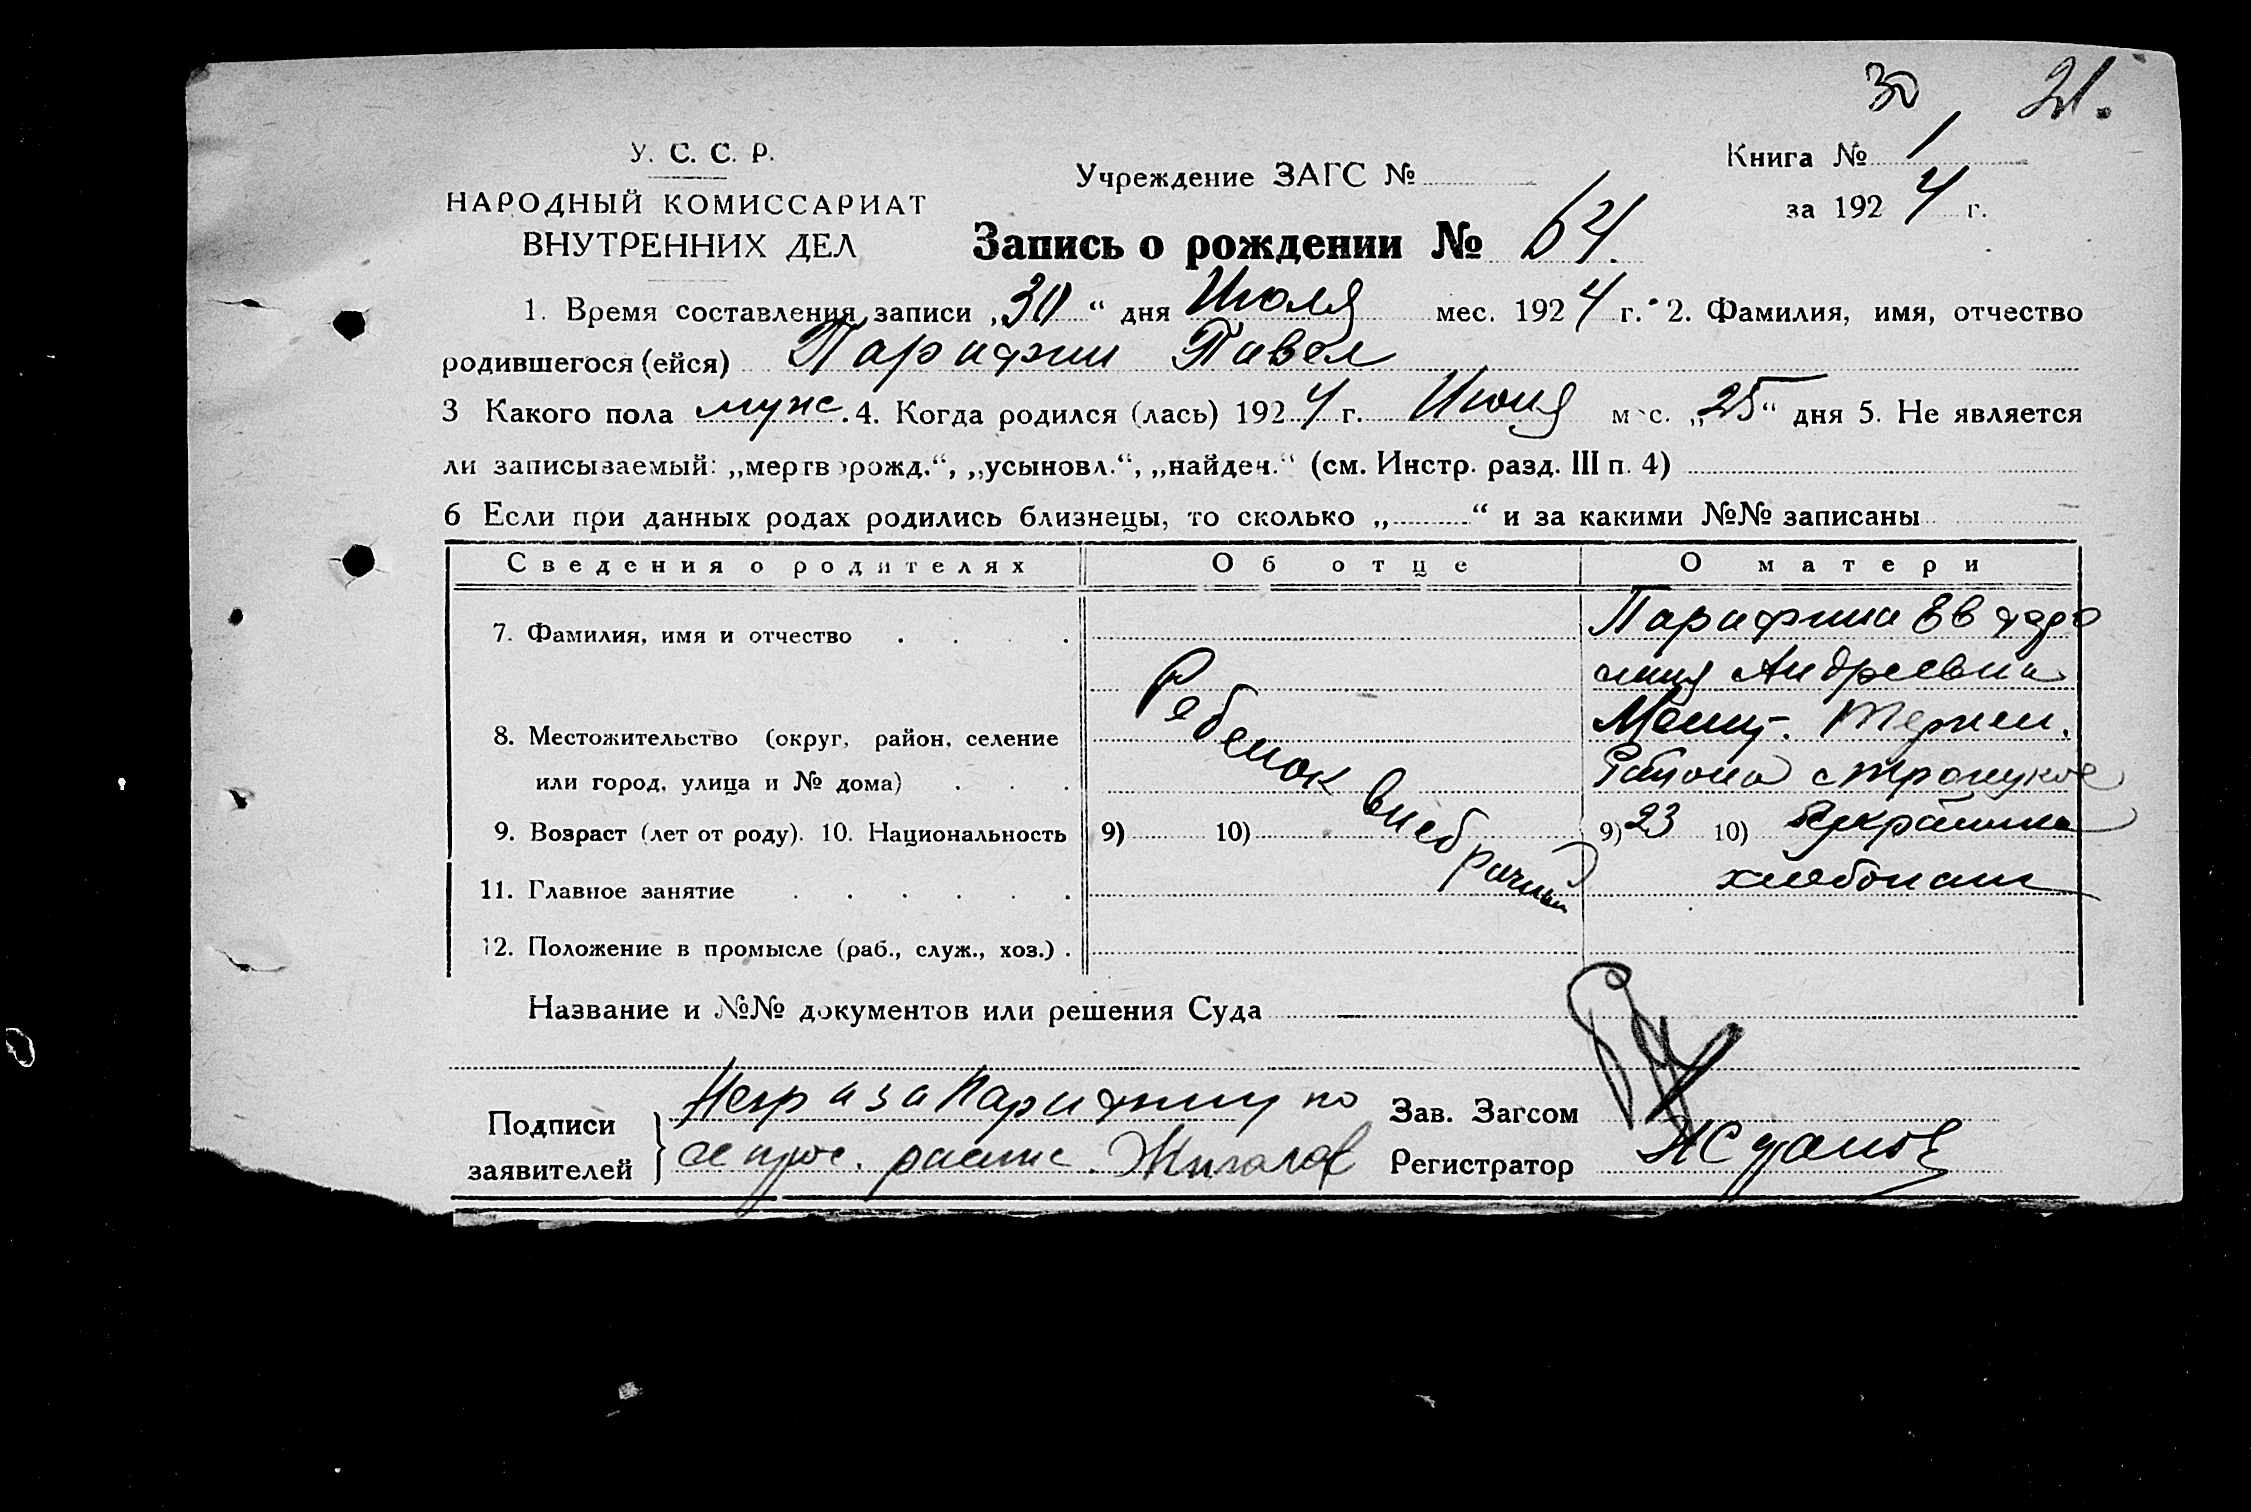 30 21.
У. С. С. Р.
НАРОДНЫЙ КОМИССАРИАТ
ВНУТРЕННИХ ДЕЛ
Учреждение ЗАГС №
Книга № 1
за 1924 г.
Запись о рождении № 64.
1. Время составления записи „30“ дня Июля мес. 1924 г. 2. Фамилия, имя, отчество
родившегося (ейся) Парифин Павел
3 Какого пола муж. 4. Когда родился (лась) 1924 г. Июня мес. „25“ дня 5. Не является
ли записываемый: „мертворожд.“, „усыновл.“, „найден.“ (см. Инстр. разд. III п. 4)
6 Если при данных родах родились близнецы, то сколько „ “ и за какими №№ записаны
Сведения о родителях Об отце О матери
7. Фамилия, имя и отчество Парифина Евдо
Андреевна
8. Местожительство (округ, район, селение
или город, улица и № дома) Района
Ребенок внебрачный
9. Возраст (лет от роду). 10. Национальность 9) 10) 9) 23 10) Украинка
11. Главное занятие хлебопаш
12. Положение в промысле (раб., служ., хоз.)
Название и №№ документов или решения Суда
Подписи заявителей
Негр а за Парифину по
ее прос. распис.
Зав. Загсом
Регистратор Жданов